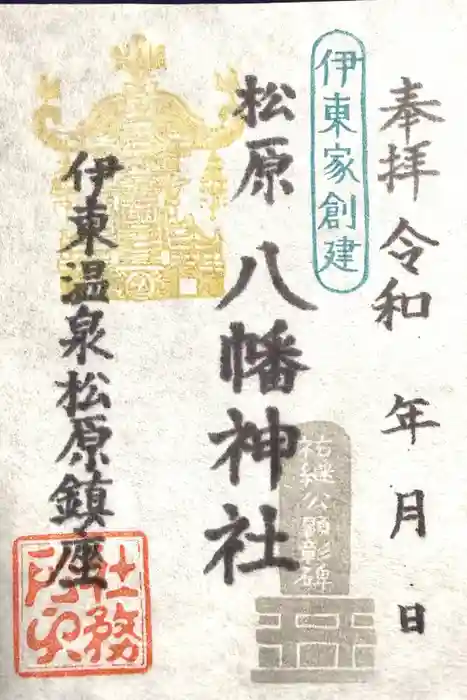 奉拝 令和 年 月 日
伊東家創建
松原 八幡神社
祐継公顕彰碑
伊東温泉松原鎮座
社務所印